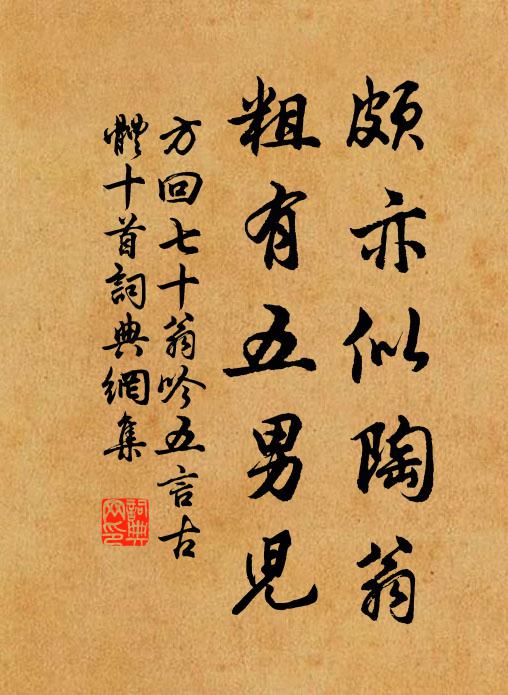 頗亦似陶翁
粗有五男児
方回七十翁吟五言古
體十首詞典網集
詞典
网印